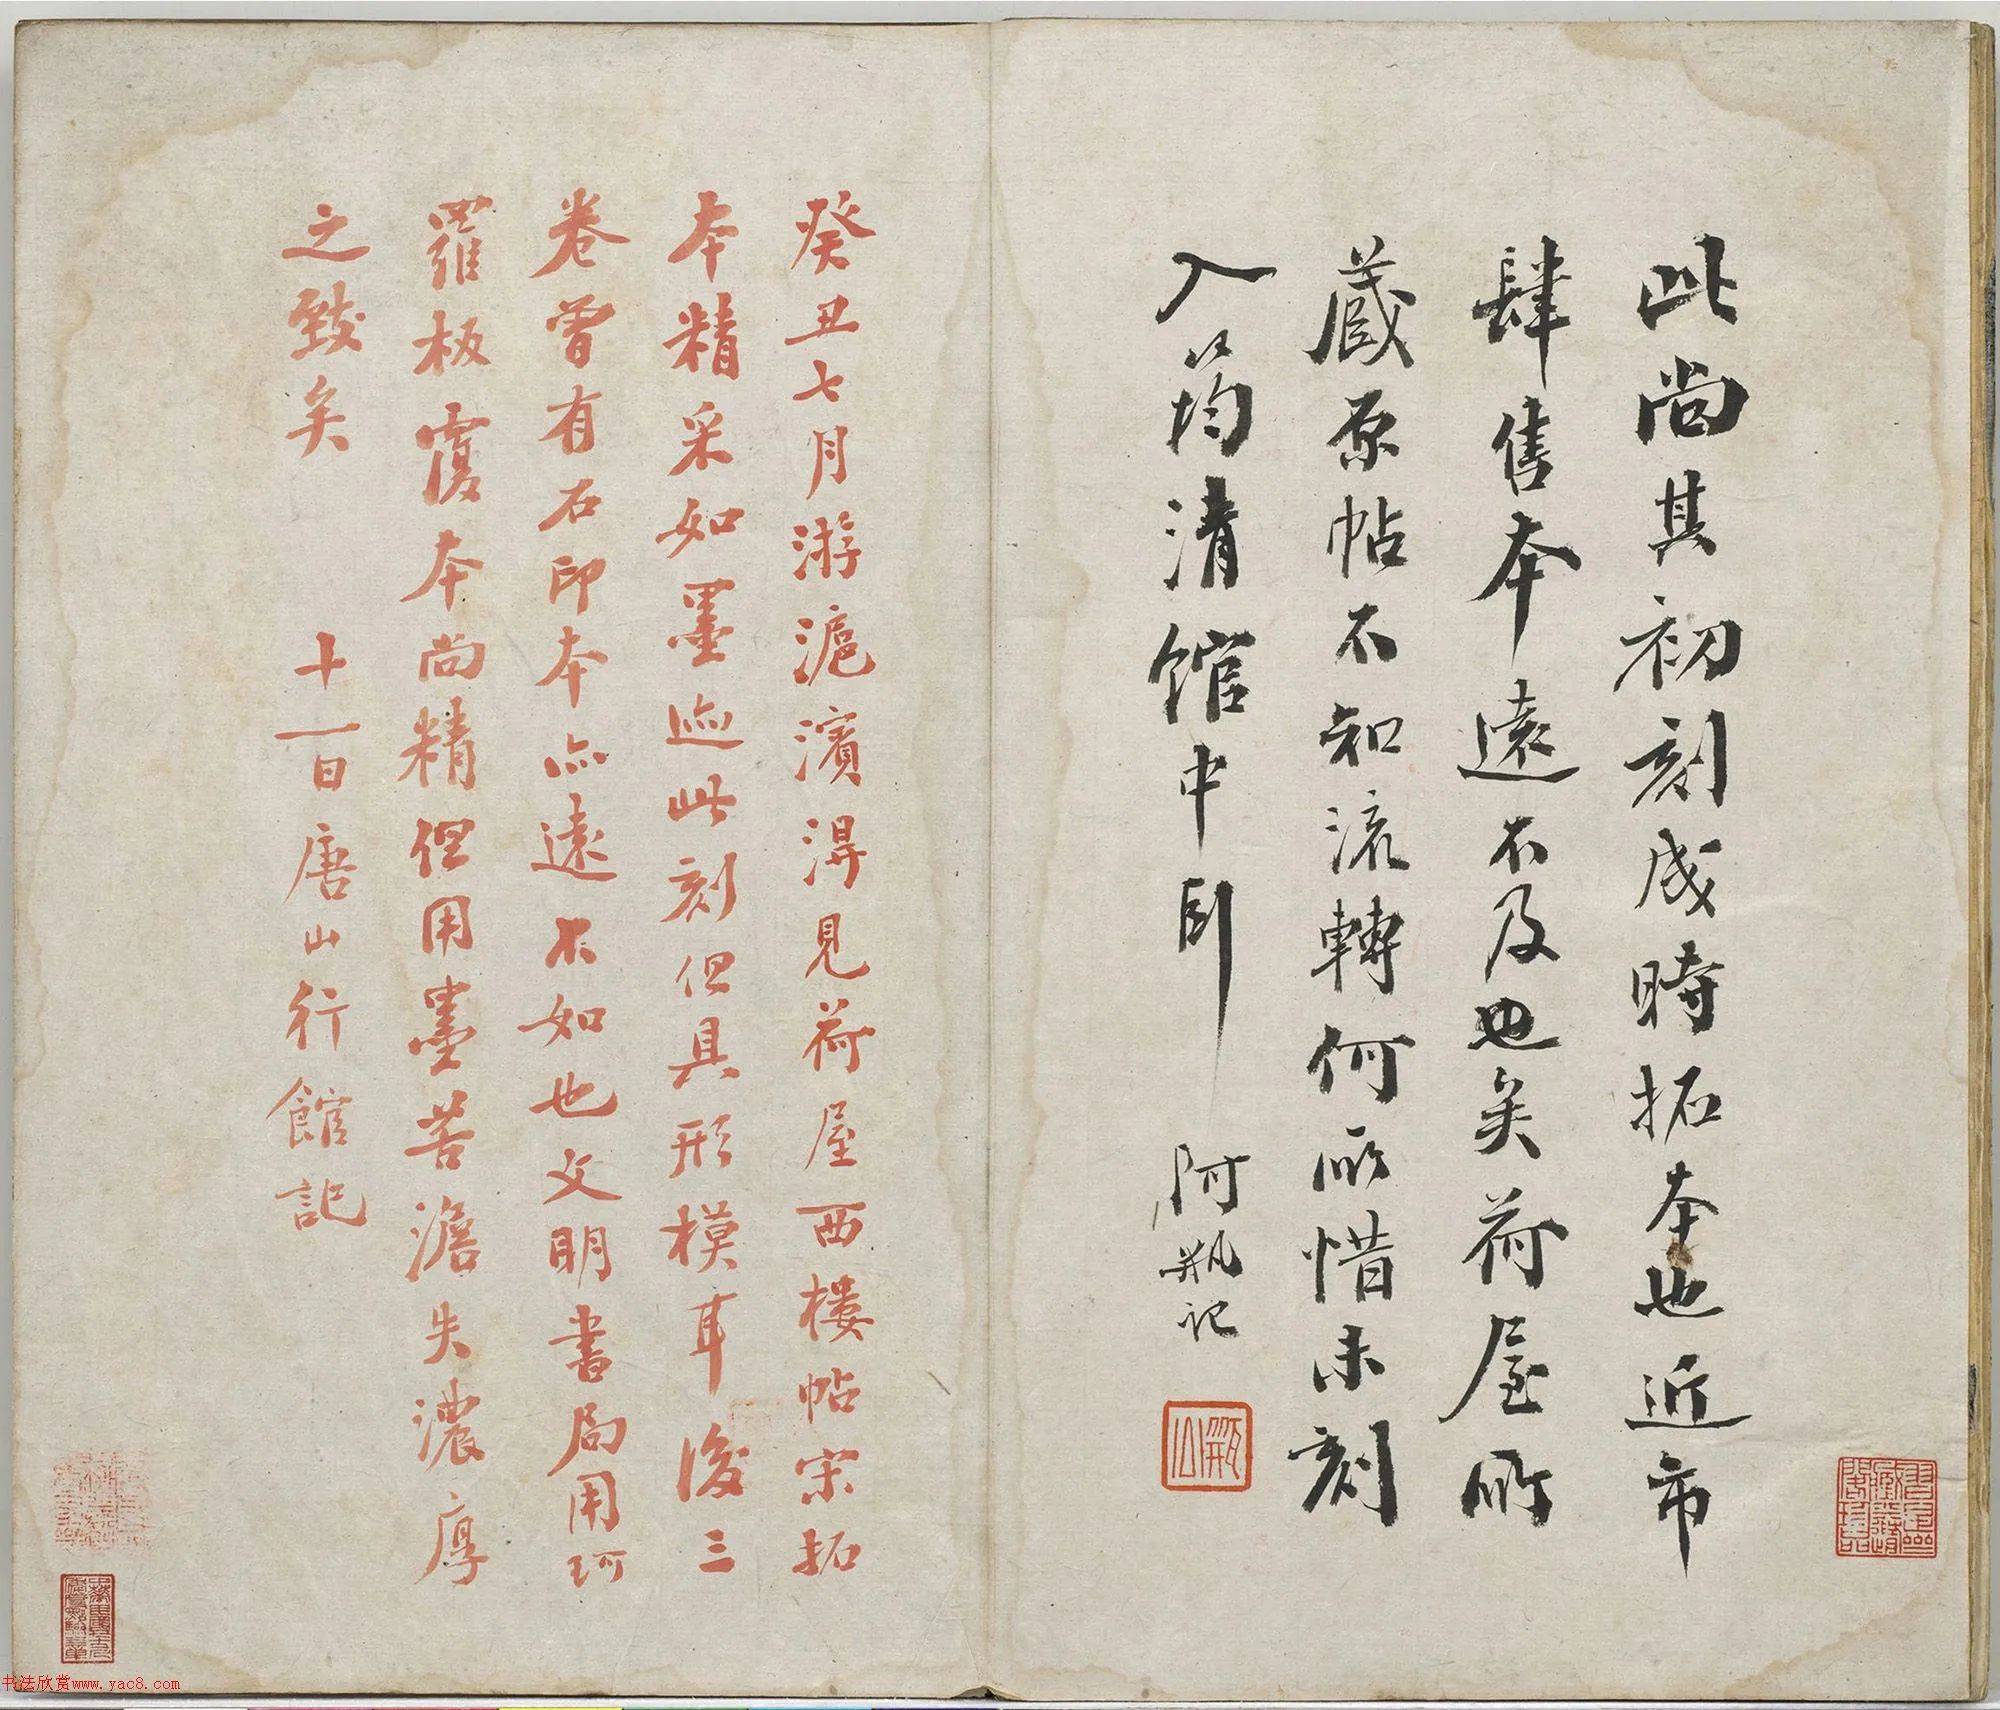 此尚其初刻成時拓本也近市
肆售本遠不及也矣荷屋所
蔵原帖不知流轉何所惜未刻
入筠清館中即
阿瓶記
癸丑七月游滬濱得見荷屋西樓帖宋拓
本精采如墨迹此刻但具形模耳後三
卷曾有石印本亦遠不如也文明書局用珂
羅板覆本尚精但用墨苦澹失濃厚
之致矣　十一日唐山行館記
书法欣赏www.yac8.com